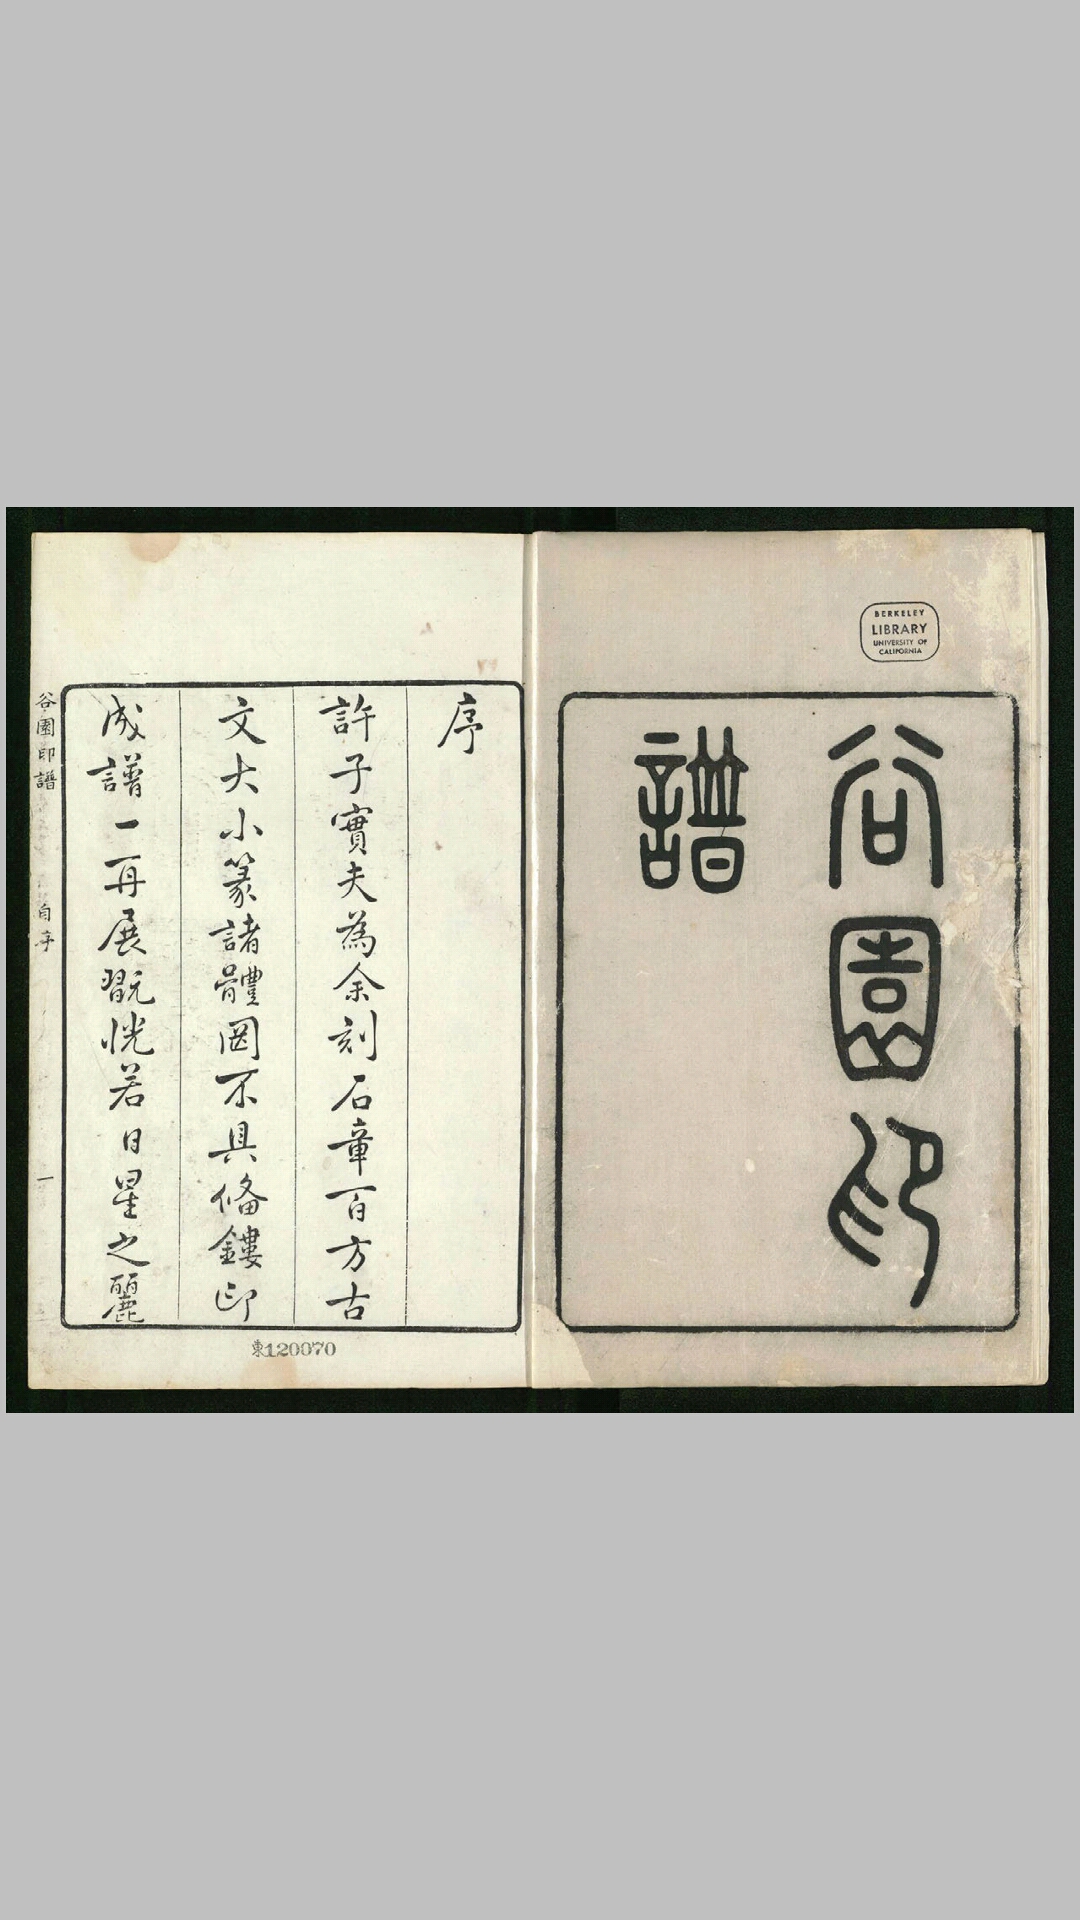 谷園印
譜
BERKELEY
LIBRARY
UNIVERSITY OF
CALIFORNIA
序
許子實夫為余刻石章百方古
文大小篆諸體罔不具偹鏤印
成譜一再展翫恍若日星之麗
谷園印譜 自序 一
東120070